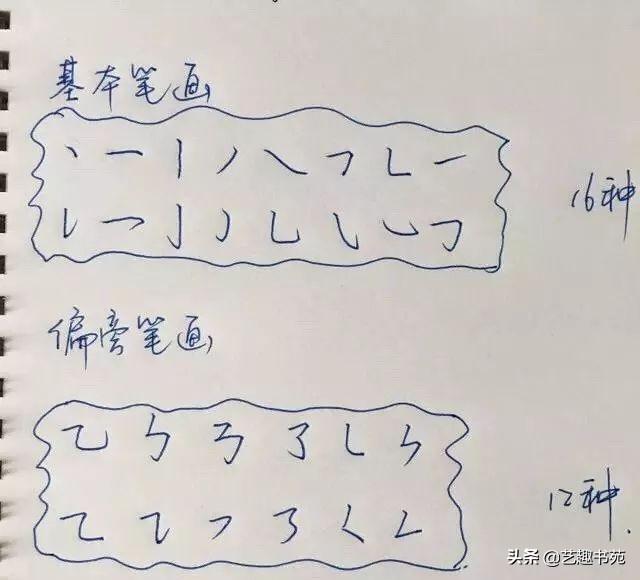 基本笔画
丶 一 丨 丿 ㇏ ㇇ ㇗ ㇀
㇙ 乛 亅 ㇓ ㇗ ㇂ ㇃ ㇆
16种
偏旁笔画
乙 ㇉ ㇡ ㇋ ㇄ ㇉
㇍ ㇊ ㇇ ㇌ ㇛ ㇜
12种.
头条 @艺趣书苑